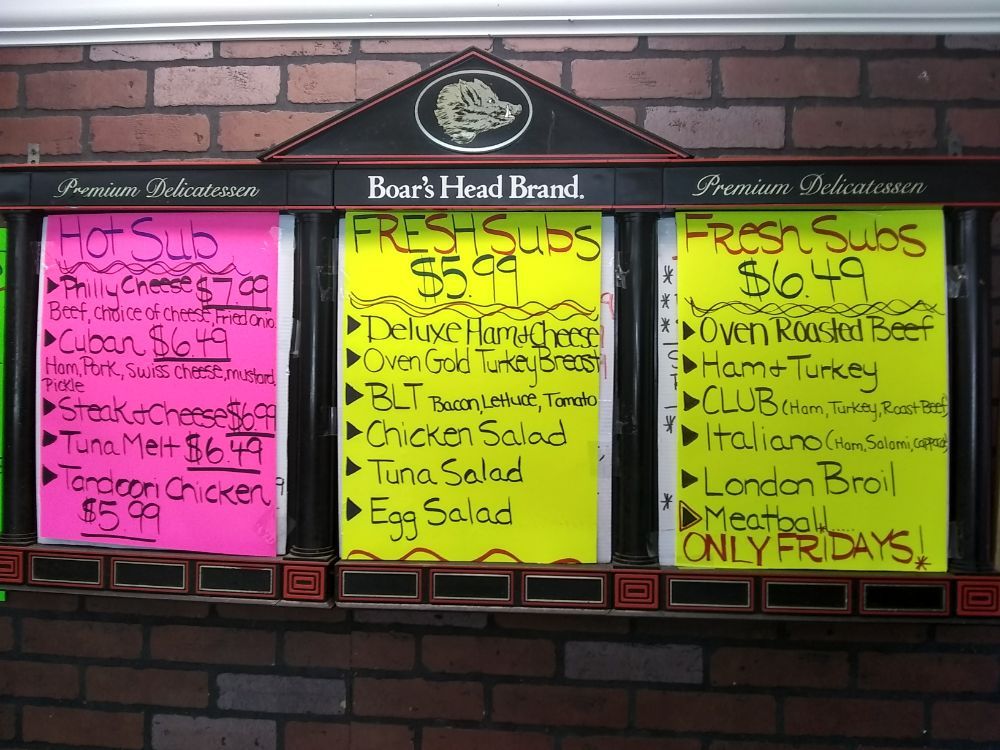 Premium Delicatessen
Boar's Head Brand.
Premium Delicatessen
Hot Sub
Philly Cheese $7.99
Beef, choice of cheese, Fried Onio.
Cuban $6.49
Ham, Pork, Swiss cheese, mustard,
Pickle
Steak + Cheese $6.99
Tuna Melt $6.49
Tandoori Chicken
$5.99
FRESH Subs
$5.99
Deluxe Ham + Cheese
Oven Gold Turkey Breast
BLT Bacon, Lettuce, Tomato
Chicken Salad
Tuna Salad
Egg Salad
Fresh Subs
$6.49
Oven Roasted Beef
Ham + Turkey
CLUB (Ham, Turkey, Roast Beef
Italiano (Ham, Salami,
London Broil
Meatball.....
ONLY FRIDAYS! *